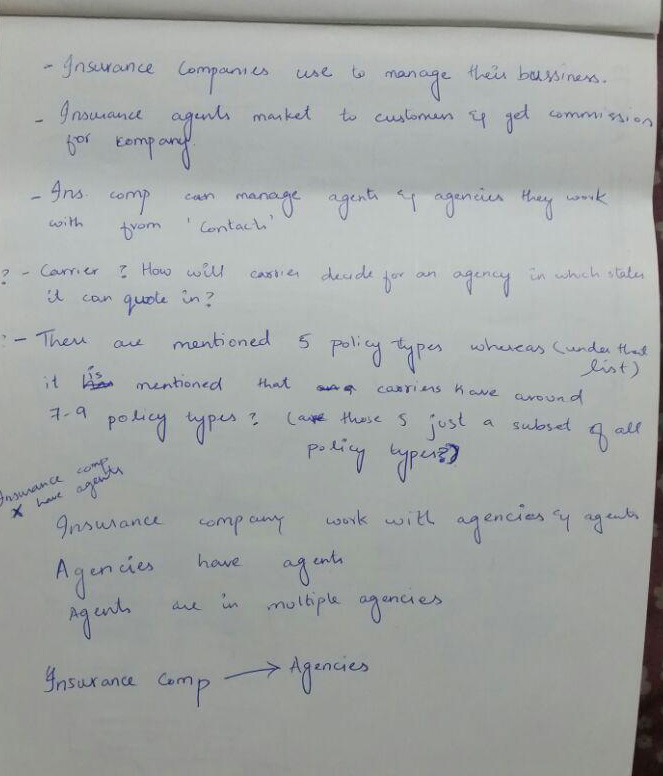 - Insurance Companies use to manage their bussiness.
- Insurance agents market to customers & get commission
for company.
- Ins. comp can manage agents & agencies they work
with from 'Contacts'
? - Carrier ? How will carrier decide for an agency in which states
it can quote in ?
? - There are mentioned 5 policy types whereas (under that
list)
it is mentioned that carriers have around
7-9 policy types ? (are those 5 just a subset of all
policy types?)
Insurance comp
x have agents
Insurance company work with agencies & agents
Agencies have agents
Agents are in multiple agencies
Insurance comp → Agencies